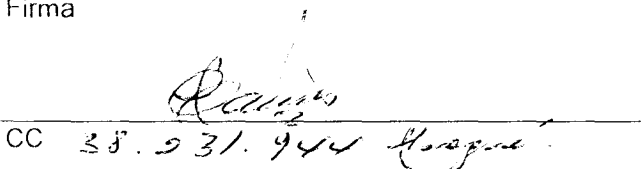 Firma
CC 38.231.944 Ibagué